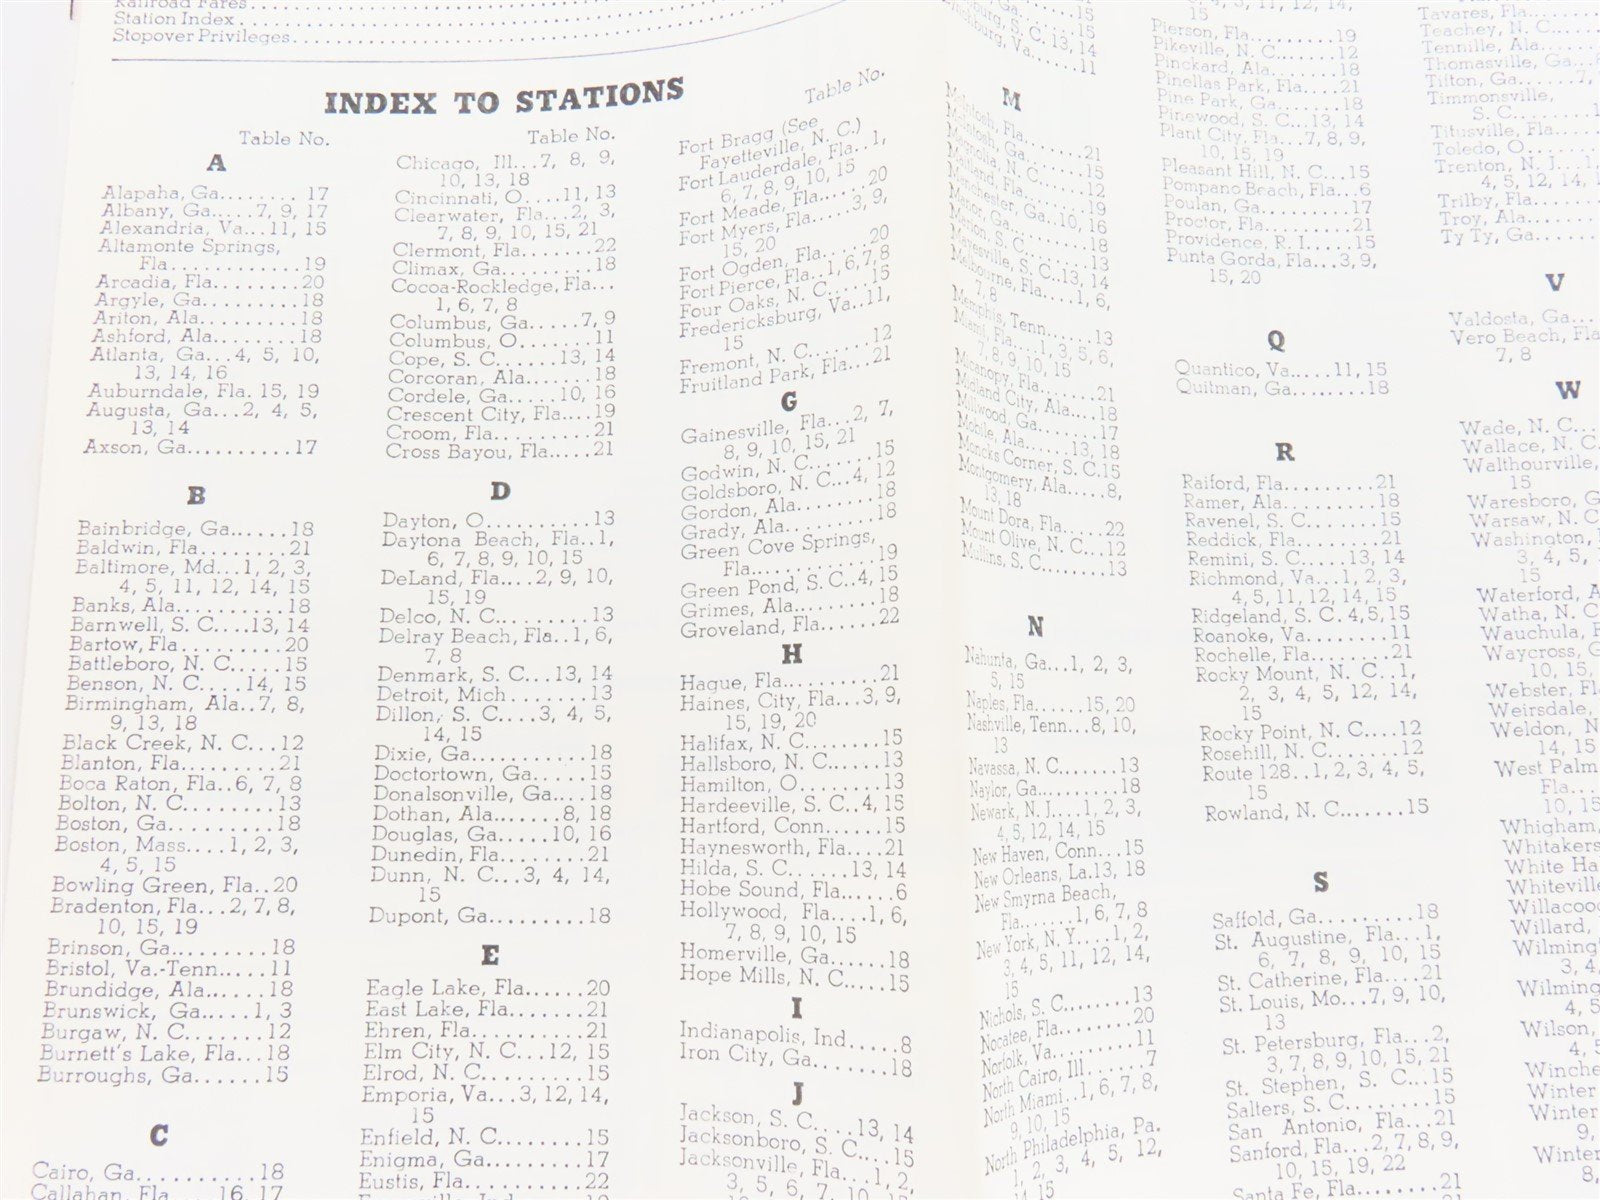 Railroad Fares
Station Index
Stopover Privileges
INDEX TO STATIONS
Table No.
A
Alapaha, Ga........ 17
Albany, Ga.....7, 9, 17
Alexandria, Va...11, 15
Altamonte Springs,
Fla............19
Arcadia, Fla.........20
Argyle, Ga..........18
Ariton, Ala..........18
Ashford, Ala........18
Atlanta, Ga...4, 5, 10,
13, 14, 16
Auburndale, Fla. 15, 19
Augusta, Ga...2, 4, 5,
13, 14
Axson, Ga..........17
B
Bainbridge, Ga......18
Baldwin, Fla........21
Baltimore, Md...1, 2, 3,
4, 5, 11, 12, 14, 15
Banks, Ala..........18
Barnwell, S. C....13, 14
Bartow, Fla.........20
Battleboro, N. C.....15
Benson, N. C....14, 15
Birmingham, Ala..7, 8,
9, 13, 18
Black Creek, N. C...12
Blanton, Fla.........21
Boca Raton, Fla..6, 7, 8
Bolton, N. C.........13
Boston, Ga..........18
Boston, Mass....1, 2, 3,
4, 5, 15
Bowling Green, Fla..20
Bradenton, Fla...2, 7, 8,
10, 15, 19
Brinson, Ga.........18
Bristol, Va.-Tenn.....11
Brundidge, Ala......18
Brunswick, Ga.....1, 3
Burgaw, N. C.......12
Burnett's Lake, Fla...18
Burroughs, Ga......15
C
Cairo, Ga...........18
Callahan, Fla....16, 17
Table No.
Chicago, Ill...7, 8, 9,
10, 13, 18
Cincinnati, O....11, 13
Clearwater, Fla...2, 3,
7, 8, 9, 10, 15, 21
Clermont, Fla.......22
Climax, Ga.........18
Cocoa-Rockledge, Fla...
1, 6, 7, 8
Columbus, Ga.....7, 9
Columbus, O.......11
Cope, S. C......13, 14
Corcoran, Ala.......18
Cordele, Ga.....10, 16
Crescent City, Fla....19
Croom, Fla.........21
Cross Bayou, Fla.....21
D
Dayton, O..........13
Daytona Beach, Fla..1,
6, 7, 8, 9, 10, 15
DeLand, Fla....2, 9, 10,
15, 19
Delco, N. C.........13
Delray Beach, Fla..1, 6,
7, 8
Denmark, S. C...13, 14
Detroit, Mich........13
Dillon, S. C....3, 4, 5,
14, 15
Dixie, Ga...........18
Doctortown, Ga.....15
Donalsonville, Ga....18
Dothan, Ala......8, 18
Douglas, Ga.....10, 16
Dunedin, Fla........21
Dunn, N. C...3, 4, 14,
15
Dupont, Ga.........18
E
Eagle Lake, Fla......20
East Lake, Fla.......21
Ehren, Fla..........21
Elm City, N. C...12, 15
Elrod, N. C.........15
Emporia, Va...3, 12, 14,
15
Enfield, N. C........15
Enigma, Ga.........17
Eustis, Fla..........22
Table No.
Fort Bragg (See
Fayetteville, N. C.)
Fort Lauderdale, Fla..1,
6, 7, 8, 9, 10, 15
Fort Meade, Fla.....20
Fort Myers, Fla....3, 9,
15, 20
Fort Ogden, Fla.....20
Fort Pierce, Fla..1, 6,7,8
Four Oaks, N. C.....15
Fredericksburg, Va..11,
15
Fremont, N. C......12
Fruitland Park, Fla...21
G
Gainesville, Fla...2, 7,
8, 9, 10, 15, 21
Godwin, N. C.......15
Goldsboro, N. C...4, 12
Gordon, Ala........18
Grady, Ala.........18
Green Cove Springs,
Fla............19
Green Pond, S. C..4, 15
Grimes, Ala.........18
Groveland, Fla......22
H
Hague, Fla..........21
Haines, City, Fla...3, 9,
15, 19, 20
Halifax, N. C........15
Hallsboro, N. C......13
Hamilton, O........13
Hardeeville, S. C..4, 15
Hartford, Conn......15
Haynesworth, Fla....21
Hilda, S. C......13, 14
Hobe Sound, Fla......6
Hollywood, Fla....1, 6,
7, 8, 9, 10, 15
Homerville, Ga......18
Hope Mills, N. C.....15
I
Indianapolis, Ind.....8
Iron City, Ga........18
J
Jackson, S. C....13, 14
Jacksonboro, S. C....15
Jacksonville, Fla...1, 2,
3, 5, 6, 7, 10, 15
M
McIntosh, Fla.......21
McIntosh, Ga.......15
Magnolia, N. C.....12
Maitland, Fla.......19
Manchester, Ga..10, 16
Manor, Ga.........18
Marion, S. C........13
Mayesville, S. C..13, 14
Melbourne, Fla....1, 6,
7, 8
Memphis, Tenn......13
Miami, Fla...1, 3, 5, 6,
7, 8, 9, 10, 15
Micanopy, Fla.......21
Midland City, Ala....18
Millwood, Ga.......17
Mobile, Ala.....13, 18
Moncks Corner, S. C.15
Montgomery, Ala....8,
13, 18
Mount Dora, Fla.....22
Mount Olive, N. C...12
Mullins, S. C........13
N
Nahunta, Ga...1, 2, 3,
5, 15
Naples, Fla......15, 20
Nashville, Tenn...8, 10,
13
Navassa, N. C.......13
Naylor, Ga..........18
Newark, N. J....1, 2, 3,
4, 5, 12, 14, 15
New Haven, Conn...15
New Orleans, La.13, 18
New Smyrna Beach,
Fla.......1, 6, 7, 8
New York, N. Y....1, 2,
3, 4, 5, 11, 12, 14,
15
Nichols, S. C........13
Nocatee, Fla........20
Norfolk, Va.........11
North Cairo, Ill.......7
North Miami..1, 6, 7, 8,
9, 10, 15
North Philadelphia, Pa.
1, 2, 3, 4, 5, 12,
14, 15
15
Pierson, Fla.........19
Pikeville, N. C.......12
Pinckard, Ala.......18
Pinellas Park, Fla....21
Pine Park, Ga.......18
Pinewood, S. C...13, 14
Plant City, Fla...7, 8, 9,
10, 15, 19
Pleasant Hill, N. C...15
Pompano Beach, Fla...6
Poulan, Ga.........17
Proctor, Fla.........21
Providence, R. I.....15
Punta Gorda, Fla...3, 9,
15, 20
Q
Quantico, Va.....11, 15
Quitman, Ga........18
R
Raiford, Fla.........21
Ramer, Ala.........18
Ravenel, S. C.......15
Reddick, Fla........21
Remini, S. C.....13, 14
Richmond, Va...1, 2, 3,
4, 5, 11, 12, 14, 15
Ridgeland, S. C. 4, 5, 15
Roanoke, Va........11
Rochelle, Fla........21
Rocky Mount, N. C..1,
2, 3, 4, 5, 12, 14,
15
Rocky Point, N. C....12
Rosehill, N. C.......12
Route 128..1, 2, 3, 4, 5,
15
Rowland, N. C.......15
S
Saffold, Ga..........18
St. Augustine, Fla...1,
6, 7, 8, 9, 10, 15
St. Catherine, Fla....21
St. Louis, Mo...7, 9, 10,
13
St. Petersburg, Fla...2,
3, 7, 8, 9, 10, 15, 21
St. Stephen, S. C...15
Salters, S. C.........15
San Antonio, Fla...21
Sanford, Fla...2, 7, 8, 9,
10, 15, 19, 22
Santa Fe, Fla........21
Tavares, Fla
Teachey, N. C
Tennille, Ala
Thomasville, Ga
Tifton, Ga.......7,
Timmonsville,
S. C
Titusville, Fla
Toledo, O
Trenton, N. J...1,
4, 5, 12, 14,
Trilby, Fla
Troy, Ala
Ty Ty, Ga
V
Valdosta, Ga
Vero Beach, Fla
7, 8
W
Wade, N. C
Wallace, N. C
Walthourville,
15
Waresboro, G
Warsaw, N. C
Washington,
3, 4, 5,
15
Waterford, A
Watha, N. C
Wauchula, F
Waycross, G
10, 15,
Webster, Fl
Weirsdale,
Weldon, N
14, 15
West Palm
Fla
10, 15
Whigham,
Whitakers
White Ha
Whiteville
Willacooc
Willard,
Wilming
3, 4,
Wilming
4, 5
Wilson,
4, 5
Winche
Winter
Winter
9,
Winter
8,